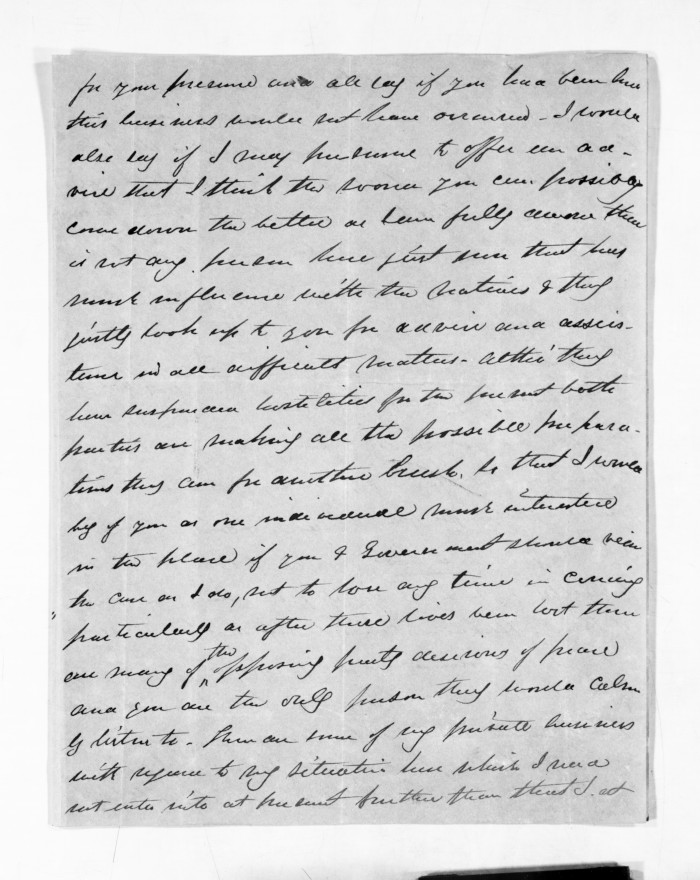 for your presence and all say if you had been here
this business would not have occurred - I would
also say if I may presume to offer an ad-
vice that I think the sooner you can possibly
come down the better as I am fully aware there
is not any person here just now that has
much influence with the Natives & they
justly look up to you for advice and assis-
tance in all difficult matters - altho' they
have suspended hostilities for the present both
parties are making all the possible prepara-
tions they can for another brush. so that I would
beg of you as one individual much interested
in the place if you & Government should view
the case as I do, not to lose any time in coming
particularly as after these lives been lost there
are many of the opposing party desirous of peace
and you are the only person they would calm
ly listen to. There are some of my private business
with regard to my situation here which I need
not enter into at present further than that I. at